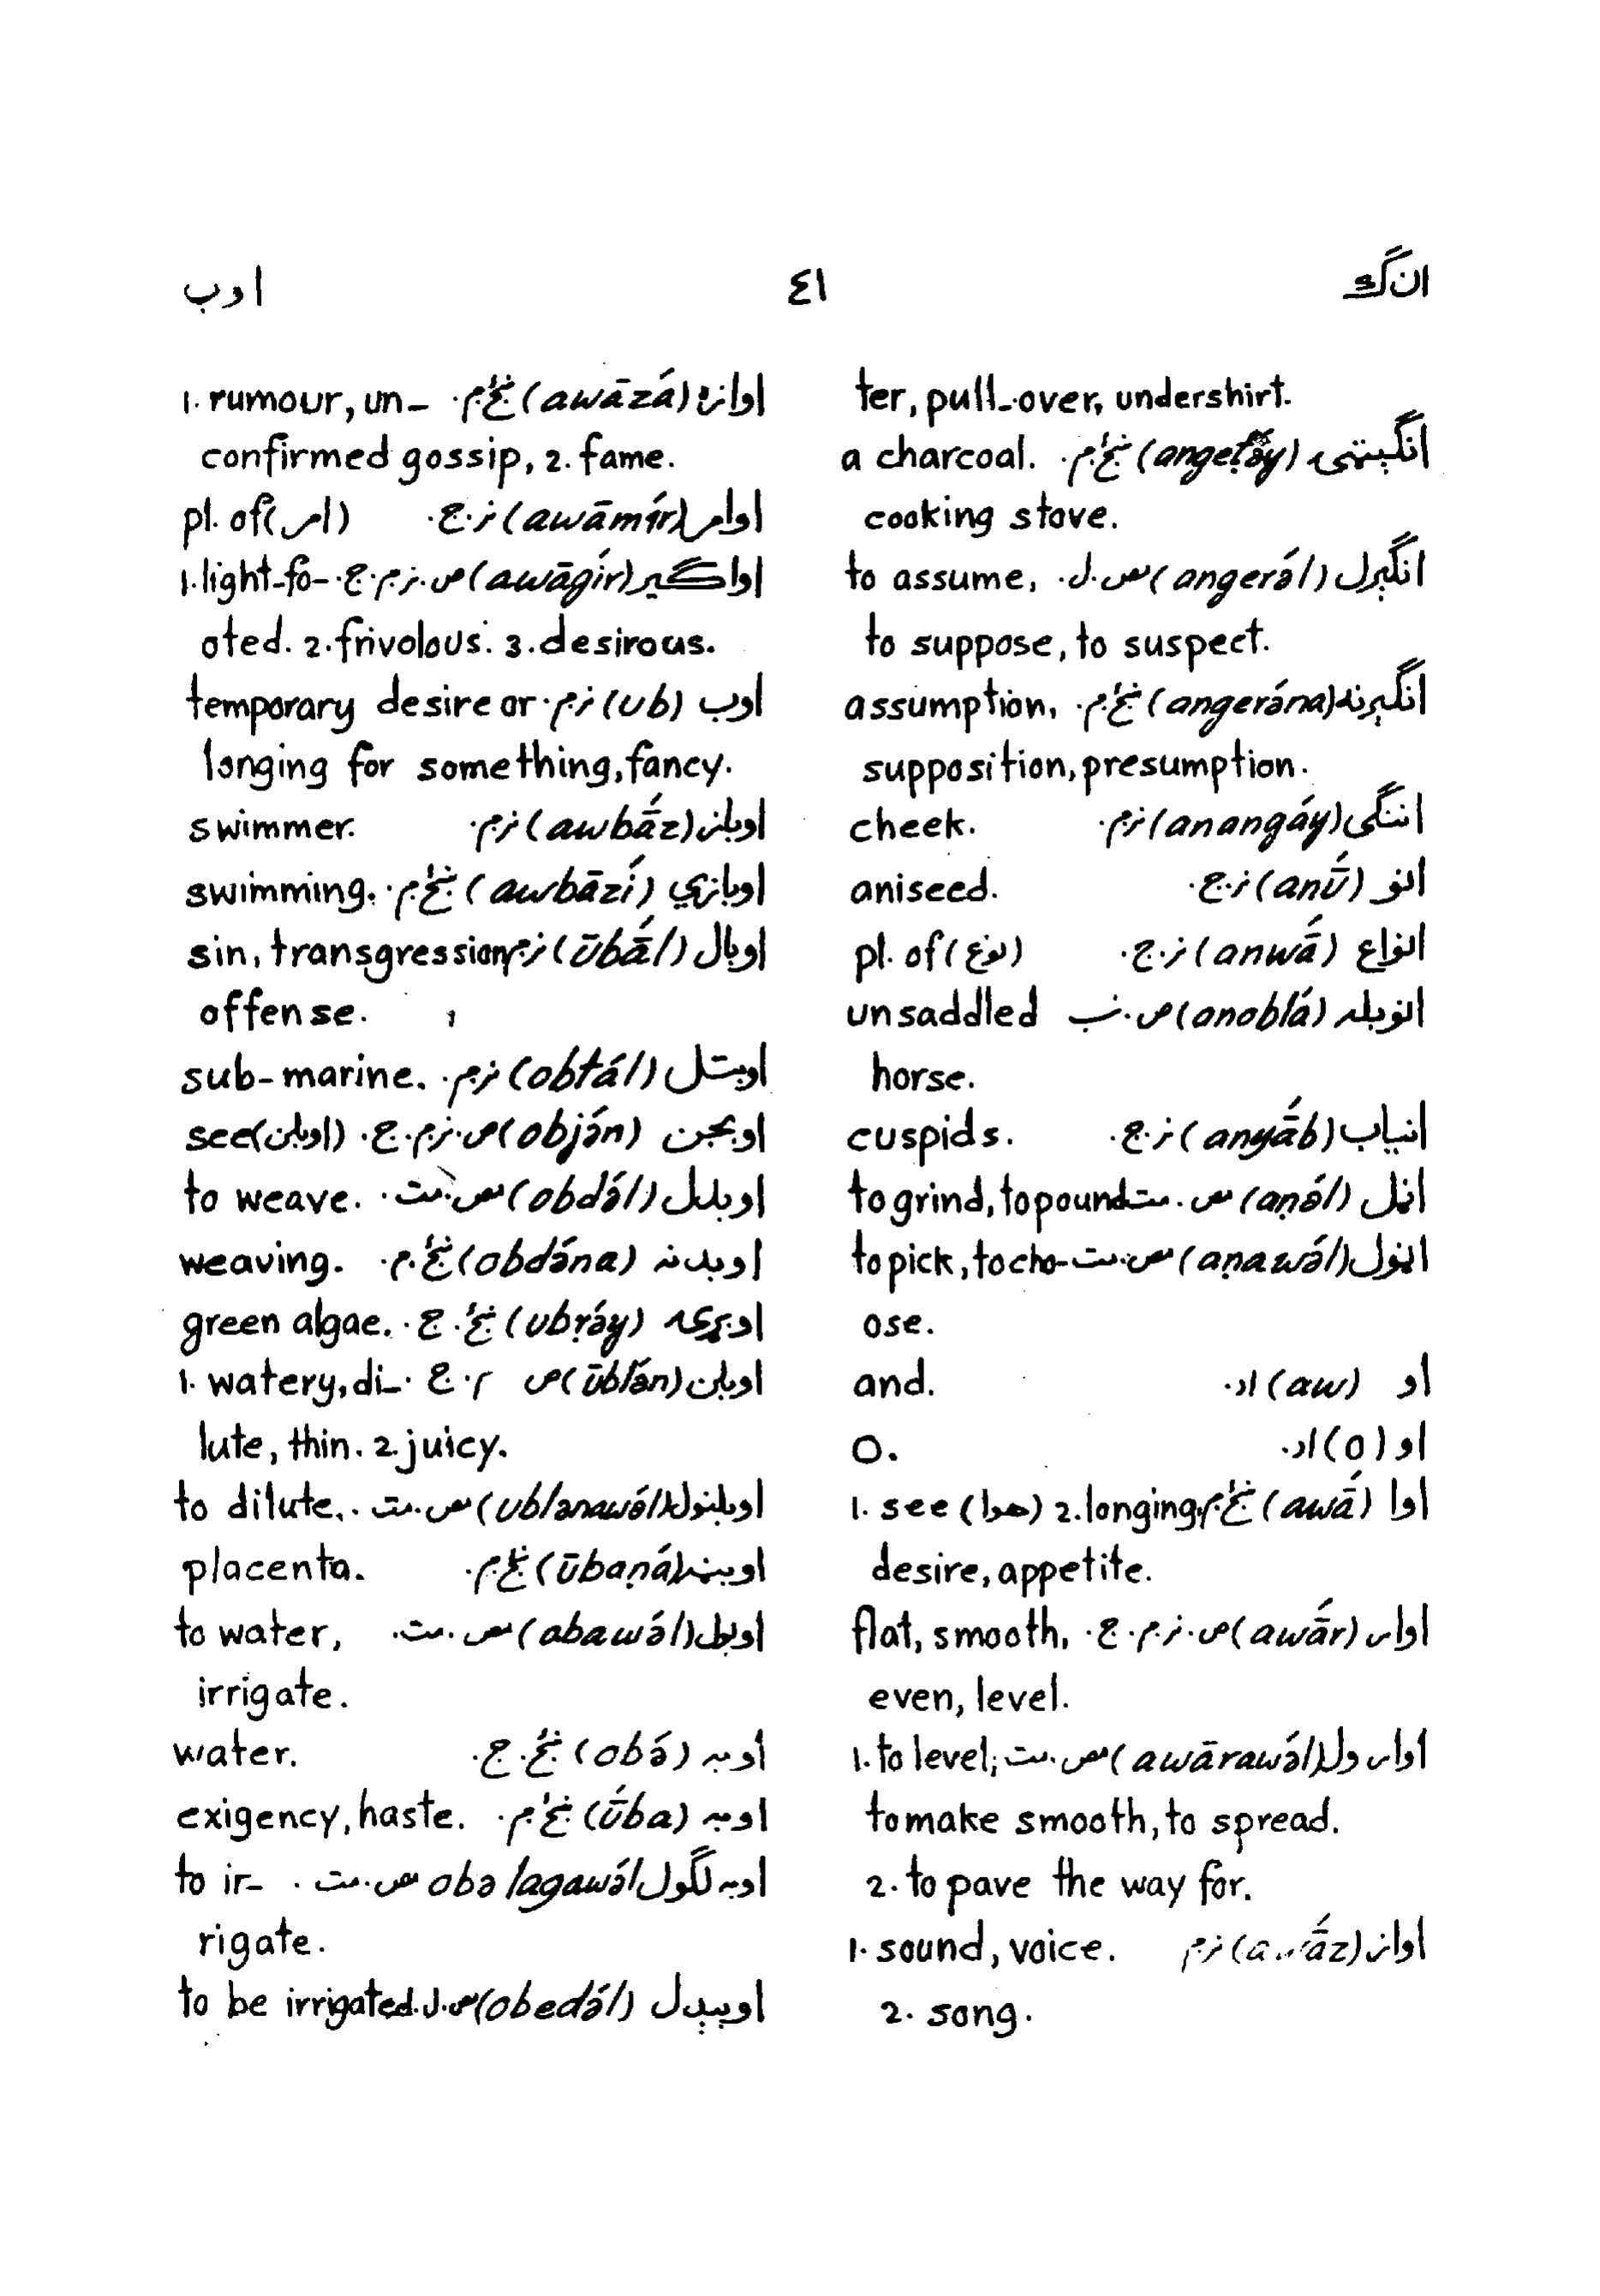 ان ګ ٤١ اوب
ter, pull-over, undershirt.
انګېټۍ (angeṭə́y) ښځ.م. a charcoal.
cooking stove.
انګېرل (angerə́l) مص.ل. to assume,
to suppose, to suspect.
انګېرنه (angerə́na) ښځ.م. assumption,
supposition, presumption.
اننګی (anangáy) نر.م. cheek.
انو (anū́) نر.ج. aniseed.
انواع (anwā́) نر.ج. pl. of (نوع)
انوبله (anoblá) ص.ښ unsaddled
horse.
انیاب (anyā́b) نر.ج. cuspids.
اڼل (aṇə́l) مص.مت to grind, to pound
اڼول (aṇawə́l) مص.مت to pick, to cho-
ose.
او (aw) اد. and.
او (o) اد. o.
اوا (awā́) ښځ.م 1. see (هوا) 2. longing,
desire, appetite.
اوار (awā́r) ص.نر.م.ج. flat, smooth,
even, level.
اوارول (awārawə́l) مص.مت 1. to level;
to make smooth, to spread.
2. to pave the way for.
اواز (awā́z) نر.م 1. sound, voice.
2. song.
اوازه (awāzá) ښځ.م. 1. rumour, un-
confirmed gossip, 2. fame.
اوامر (awāmír) نر.ج. pl. of (امر)
اواګیر (awāgír) ص.نر.م.ج. 1. light-fo-
oted. 2. frivolous. 3. desirous.
اوب (ub) نر.م. temporary desire or
longing for something, fancy.
اوباز (awbā́z) نر.م. swimmer.
اوبازي (awbāzí) ښځ.م. swimming.
اوبال (ūbā́l) نر.م sin, transgression
offense.
اوبتل (obtál) نر.م. sub-marine.
اوبجن (objə́n) ص.نر.م.ج. see (اوبلن)
اوبدل (obdə́l) مص.مت. to weave.
اوبدنه (obdə́na) ښځ.م. weaving.
اوبړۍ (ubṛə́y) ښځ.ج. green algae.
اوبلن (ūblə́n) ص م.ج. 1. watery, di-
lute, thin. 2. juicy.
اوبلنول (ublənawə́l) مص.مت. to dilute.
اوبڼه (ūbaṇá) ښځ.م. placenta.
اوبول (obawə́l) مص.مت. to water,
irrigate.
اوبه (obə́) ښځ.ج. water.
اوبه (ū́ba) ښځ.م. exigency, haste.
اوبه لګول obə lagawə́l مص.مت. to ir-
rigate.
اوبېدل (obedə́l) مص.ل. to be irrigated.